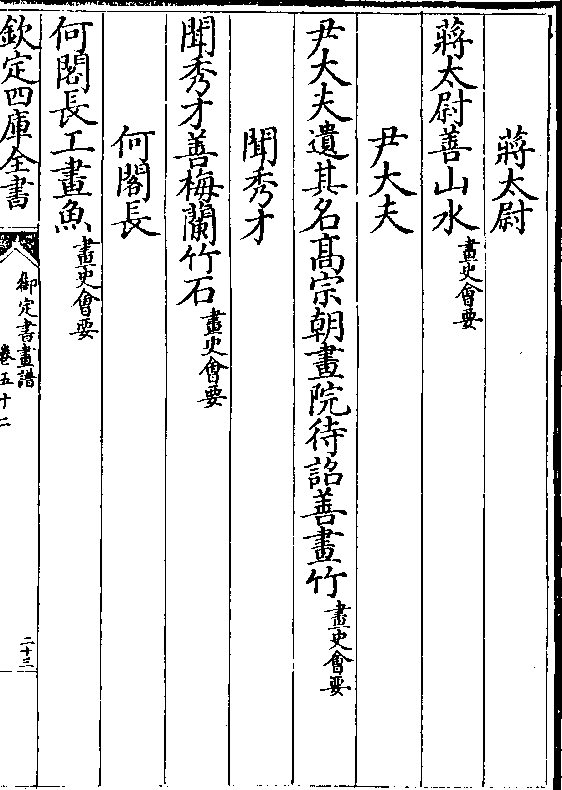 蔣太尉
蔣太尉善山水畫史會要
尹大夫
尹大夫遺其名髙宗朝畫院待詔善畫竹畫史會要
聞秀才
聞秀才善梅蘭竹石畫史會要
何閣長
何閣長工畫魚畫史會要
欽定四庫全書
御定書畫譜
卷五十二
二十三